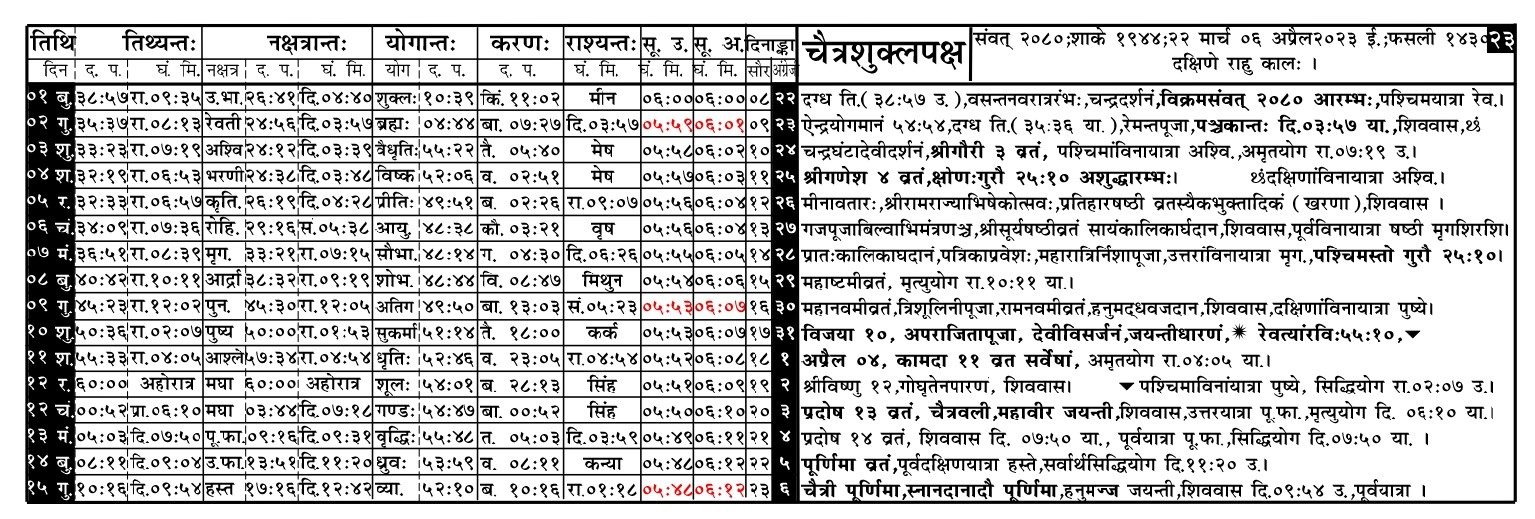 तिथि तिथ्यन्तः नक्षत्रान्तः योगान्तः करणः राश्यन्तः सू. उ. सू. अ. दिनाङ्का चैत्रशुक्लपक्ष संवत् २०८०;शाके १९४४;२२ मार्च ०६ अप्रैल२०२३ ई.;फसली १४३० २३
दिन द. प. घं. मि. नक्षत्र द. प. घं. मि. योग द. प. द. प. घं. मि. घं. मि. घं. मि. सौर अंग्रेज दक्षिणे राहु कालः ।
०१ बु. ३८:५७ रा.०९:३५ उ.भा. २६:४१ दि.०४:४० शुक्लः १०:३९ किं. ११:०२ मीन ०६:०० ०६:०० ०८ २२ दग्ध ति.( ३८:५७ उ.),वसन्तनवरात्ररंभः,चन्द्रदर्शनं,विक्रमसंवत् २०८० आरम्भः,पश्चिमयात्रा रेव.।
०२ गु. ३५:३७ रा.०८:१३ रेवती २४:५६ दि.०३:५७ ब्रह्मः ०४:४४ बा. ०७:२७ दि.०३:५७ ०५:५९ ०६:०१ ०९ २३ ऐन्द्रयोगमानं ५४:५४,दग्ध ति.( ३५:३६ या.),रेमन्तपूजा,पञ्चकान्तः दि.०३:५७ या.,शिववास,थ्रं
०३ शु. ३३:२३ रा.०७:१९ अश्वि. २४:१२ दि.०३:३९ वैधृतिः ५५:२२ तै. ०५:४० मेष ०५:५८ ०६:०२ १० २४ चन्द्रघंटादेवीदर्शनं,श्रीगौरी ३ व्रतं, पश्चिमांविनायात्रा अश्वि.,अमृतयोग रा.०७:१९ उ.।
०४ श. ३२:१९ रा.०६:५३ भरणी २४:३८ दि.०३:४८ विष्क ५२:०६ व. ०२:५१ मेष ०५:५७ ०६:०३ ११ २५ श्रीगणेश ४ व्रतं,क्षोणःगुरौ २५:१० अशुद्धारम्भः। थ्रंदक्षिणांविनायात्रा अश्वि.।
०५ र. ३२:३३ रा.०६:५७ कृति. २६:१९ दि.०४:२८ प्रीतिः ४९:५१ ब. ०२:२६ रा.०९:०७ ०५:५६ ०६:०४ १२ २६ मीनावतारः,श्रीरामराज्याभिषेकोत्सवः,प्रतिहारषष्ठी व्रतस्यैकभुक्तादिकं ( खरणा ),शिववास ।
०६ चं. ३४:०९ रा.०७:३६ रोहि. २९:१६ सं.०५:३८ आयु. ४८:३८ कौ. ०३:२१ वृष ०५:५६ ०६:०४ १३ २७ गजपूजाबिल्वाभिमंत्रणञ्च,श्रीसूर्यषष्ठीव्रतं सायंकालिकार्घदान,शिववास,पूर्वविनायात्रा षष्ठी मृगशिरशि।
०७ मं. ३६:५१ रा.०८:३९ मृग. ३३:२१ रा.०७:१५ सौभा. ४८:१४ ग. ०४:३० दि.०६:२६ ०५:५५ ०६:०५ १४ २८ प्रातःकालिकाघदानं,पत्रिकाप्रवेशः,महारात्रिर्निशापूजा,उत्तरांविनायात्रा मृग.,पश्चिमस्तो गुरौ २५:१०।
०८ बु. ४०:४२ रा.१०:११ आर्द्रा ३८:३२ रा.०९:१९ शोभ. ४८:४४ वि. ०८:४७ मिथुन ०५:५४ ०६:०६ १५ २९ महाष्टमीव्रतं, मृत्युयोग रा.१०:११ या.।
०९ गु. ४५:२३ रा.१२:०२ पुन. ४५:३० रा.१२:०५ अतिग ४९:५० बा. १३:०३ सं.०५:२३ ०५:५३ ०६:०७ १६ ३० महानवमीव्रतं,त्रिशूलिनीपूजा,रामनवमीव्रतं,हनुमद्ध्वजदान,शिववास,दक्षिणांविनायात्रा पुष्ये।
१० शु. ५०:३६ रा.०२:०७ पुष्य ५०:०० रा.०१:५३ सुकर्मा ५१:१४ तै. १८:०० कर्क ०५:५३ ०६:०७ १७ ३१ विजया १०, अपराजितापूजा, देवीविसर्जनं,जयन्तीधारणं,✷ रेवत्यांरविः५५:१०,▼
११ श. ५५:३३ रा.०४:०५ आश्ले ५७:३४ रा.०४:५४ धृतिः ५२:४६ व. २३:०५ रा.०४:५४ ०५:५२ ०६:०८ १८ १ अप्रैल ०४, कामदा ११ व्रत सर्वेषां, अमृतयोग रा.०४:०५ या.।
१२ र. ६०:०० अहोरात्र मघा ६०:०० अहोरात्र शूलः ५४:०१ ब. २८:१३ सिंह ०५:५१ ०६:०९ १९ २ श्रीविष्णु १२,गोघृतेनपारणं, शिववास। ▼पश्चिमाविनांयात्रा पुष्ये, सिद्धियोग रा.०२:०७ उ.।
१२ चं. ००:५२ प्रा.०६:१० मघा ०३:४४ दि.०७:१८ गण्डः ५४:४७ बा. ००:५२ सिंह ०५:५० ०६:१० २० ३ प्रदोष १३ व्रतं, चैत्रवली,महावीर जयन्ती,शिववास,उत्तरयात्रा पू.फा.,मृत्युयोग दि. ०६:१० या.।
१३ मं. ०५:०३ दि.०७:५० पू.फा. ०९:१६ दि.०९:३१ वृद्धिः ५५:४८ त. ०५:०३ दि.०३:५९ ०५:४९ ०६:११ २१ ४ प्रदोष १४ व्रतं, शिववास दि. ०७:५० या., पूर्वयात्रा पू.फा.,सिद्धियोग दि.०७:५० या. ।
१४ बु. ०८:११ दि.०९:०४ उ.फा. १३:५१ दि.११:२० ध्रुवः ५३:५९ व. ०८:११ कन्या ०५:४८ ०६:१२ २२ ५ पूर्णिमा व्रतं,पूर्वदक्षिणयात्रा हस्ते,सर्वार्थसिद्धियोग दि.११:२० उ.।
१५ गु. १०:१६ दि.०९:५४ हस्त १७:१६ दि.१२:४२ व्या. ५२:१० ब. १०:१६ रा.०१:१८ ०५:४८ ०६:१२ २३ ६ चैत्री पूर्णिमा,स्नानदानादौ पूर्णिमा,हनुमज्ज जयन्ती,शिववास दि.०९:५४ उ.,पूर्वयात्रा ।